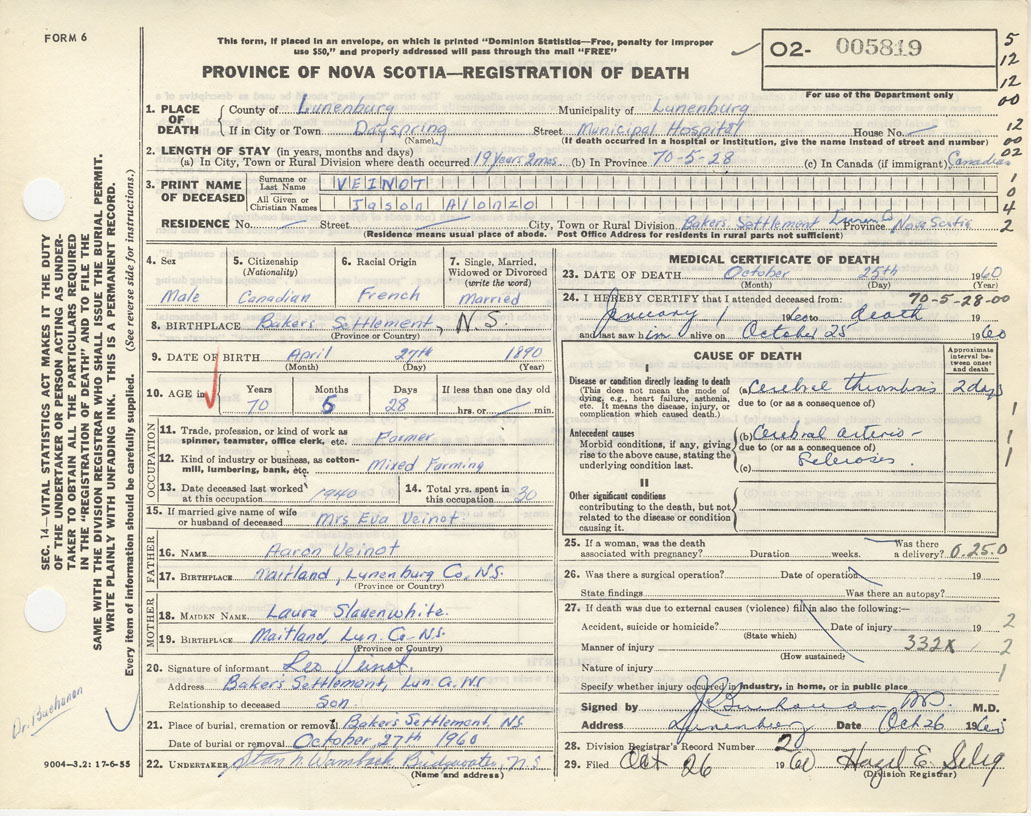 FORM 6
This form, if placed in an envelope, on which is printed "Dominion Statistics—Free, penalty for improper
use $50," and properly addressed will pass through the mail "FREE"
PROVINCE OF NOVA SCOTIA—REGISTRATION OF DEATH
O2- 005819
For use of the Department only
5
12
12
00
12
00
02
1
0
4
2
1. PLACE OF DEATH
County of Lunenburg Municipality of Lunenburg
If in City or Town Dayspring Street Municipal Hospital House No.
(Name) (If death occurred in a hospital or institution, give the name instead of street and number)
2. LENGTH OF STAY (in years, months and days)
(a) In City, Town or Rural Division where death occurred 19 years 2 mos (b) In Province 70-5-28 (c) In Canada (if immigrant) Canadian
3. PRINT NAME OF DECEASED
Surname or Last Name VEINOT
All Given or Christian Names Jason Alonzo
RESIDENCE No. Street City, Town or Rural Division Bakers Settlement Lunen Co Province Nova Scotia
(Residence means usual place of abode. Post Office Address for residents in rural parts not sufficient)
4. Sex
Male
5. Citizenship (Nationality)
Canadian
6. Racial Origin
French
7. Single, Married, Widowed or Divorced (write the word)
Married
8. BIRTHPLACE Bakers Settlement, N.S.
(Province or Country)
9. DATE OF BIRTH April 27th 1890
(Month) (Day) (Year)
10. AGE in Years Months Days If less than one day old
70 5 28 hrs. or min.
OCCUPATION
11. Trade, profession, or kind of work as spinner, teamster, office clerk, etc. Farmer
12. Kind of industry or business, as cotton-mill, lumbering, bank, etc. Mixed Farming
13. Date deceased last worked at this occupation 1940
14. Total yrs. spent in this occupation 30
15. If married give name of wife or husband of deceased Mrs Eva Veinot
FATHER
16. NAME Aaron Veinot
17. BIRTHPLACE Maitland, Lunenburg Co, N.S.
(Province or Country)
MOTHER
18. MAIDEN NAME Laura Slauenwhite.
19. BIRTHPLACE Maitland, Lun. Co. N.S.
(Province or Country)
20. Signature of informant Leo Veinot.
Address Bakers Settlement, Lun Co. N.S
Relationship to deceased Son
21. Place of burial, cremation or removal Bakers Settlement, N.S
Date of burial or removal October 27th 1960
22. UNDERTAKER Bridgewater, N.S
(Name and address)
MEDICAL CERTIFICATE OF DEATH
23. DATE OF DEATH October 25th 1960
(Month) (Day) (Year)
70-5-28-00
24. I HEREBY CERTIFY that I attended deceased from:
January 1 1960 to death 19
and last saw him alive on October 25 1960
CAUSE OF DEATH
Approximate interval between onset and death
I
Disease or condition directly leading to death (a) Cerebral thrombosis 2 days
(This does not mean the mode of dying, e.g., heart failure, asthenia, etc. It means the disease, injury, or complication which caused death.)
due to (or as a consequence of)
Antecedent causes
Morbid conditions, if any, giving rise to the above cause, stating the underlying condition last.
(b) Cerebral arterio-
due to (or as a consequence of)
(c) Sclerosis.
1
1
1
II
Other significant conditions
contributing to the death, but not related to the disease or condition causing it.
25. If a woman, was the death associated with pregnancy? Duration weeks. Was there a delivery? 6.25.0
26. Was there a surgical operation? Date of operation 19
State findings Was there an autopsy?
27. If death was due to external causes (violence) fill in also the following:—
Accident, suicide or homicide? Date of injury 19 2
(State which)
Manner of injury 332X 2
(How sustained)
Nature of injury 1
Specify whether injury occurred in industry, in home, or in public place
Signed by M.D.
Address Lunenburg Date Oct 26 1960
28. Division Registrar's Record Number 20
29. Filed Oct 26 1960 Hazel E. Selig
(Division Registrar)
SEC. 14—VITAL STATISTICS ACT MAKES IT THE DUTY
OF THE UNDERTAKER OR PERSON ACTING AS UNDER-
TAKER TO OBTAIN ALL THE PARTICULARS REQUIRED
IN THE "REGISTRATION OF DEATH" AND TO FILE THE
SAME WITH THE DIVISION REGISTRAR WHO SHALL ISSUE THE BURIAL PERMIT.
WRITE PLAINLY WITH UNFADING INK. THIS IS A PERMANENT RECORD.
Every item of information should be carefully supplied. (See reverse side for instructions.)
Dr. Buchanan
9004—3.2: 17-6-55